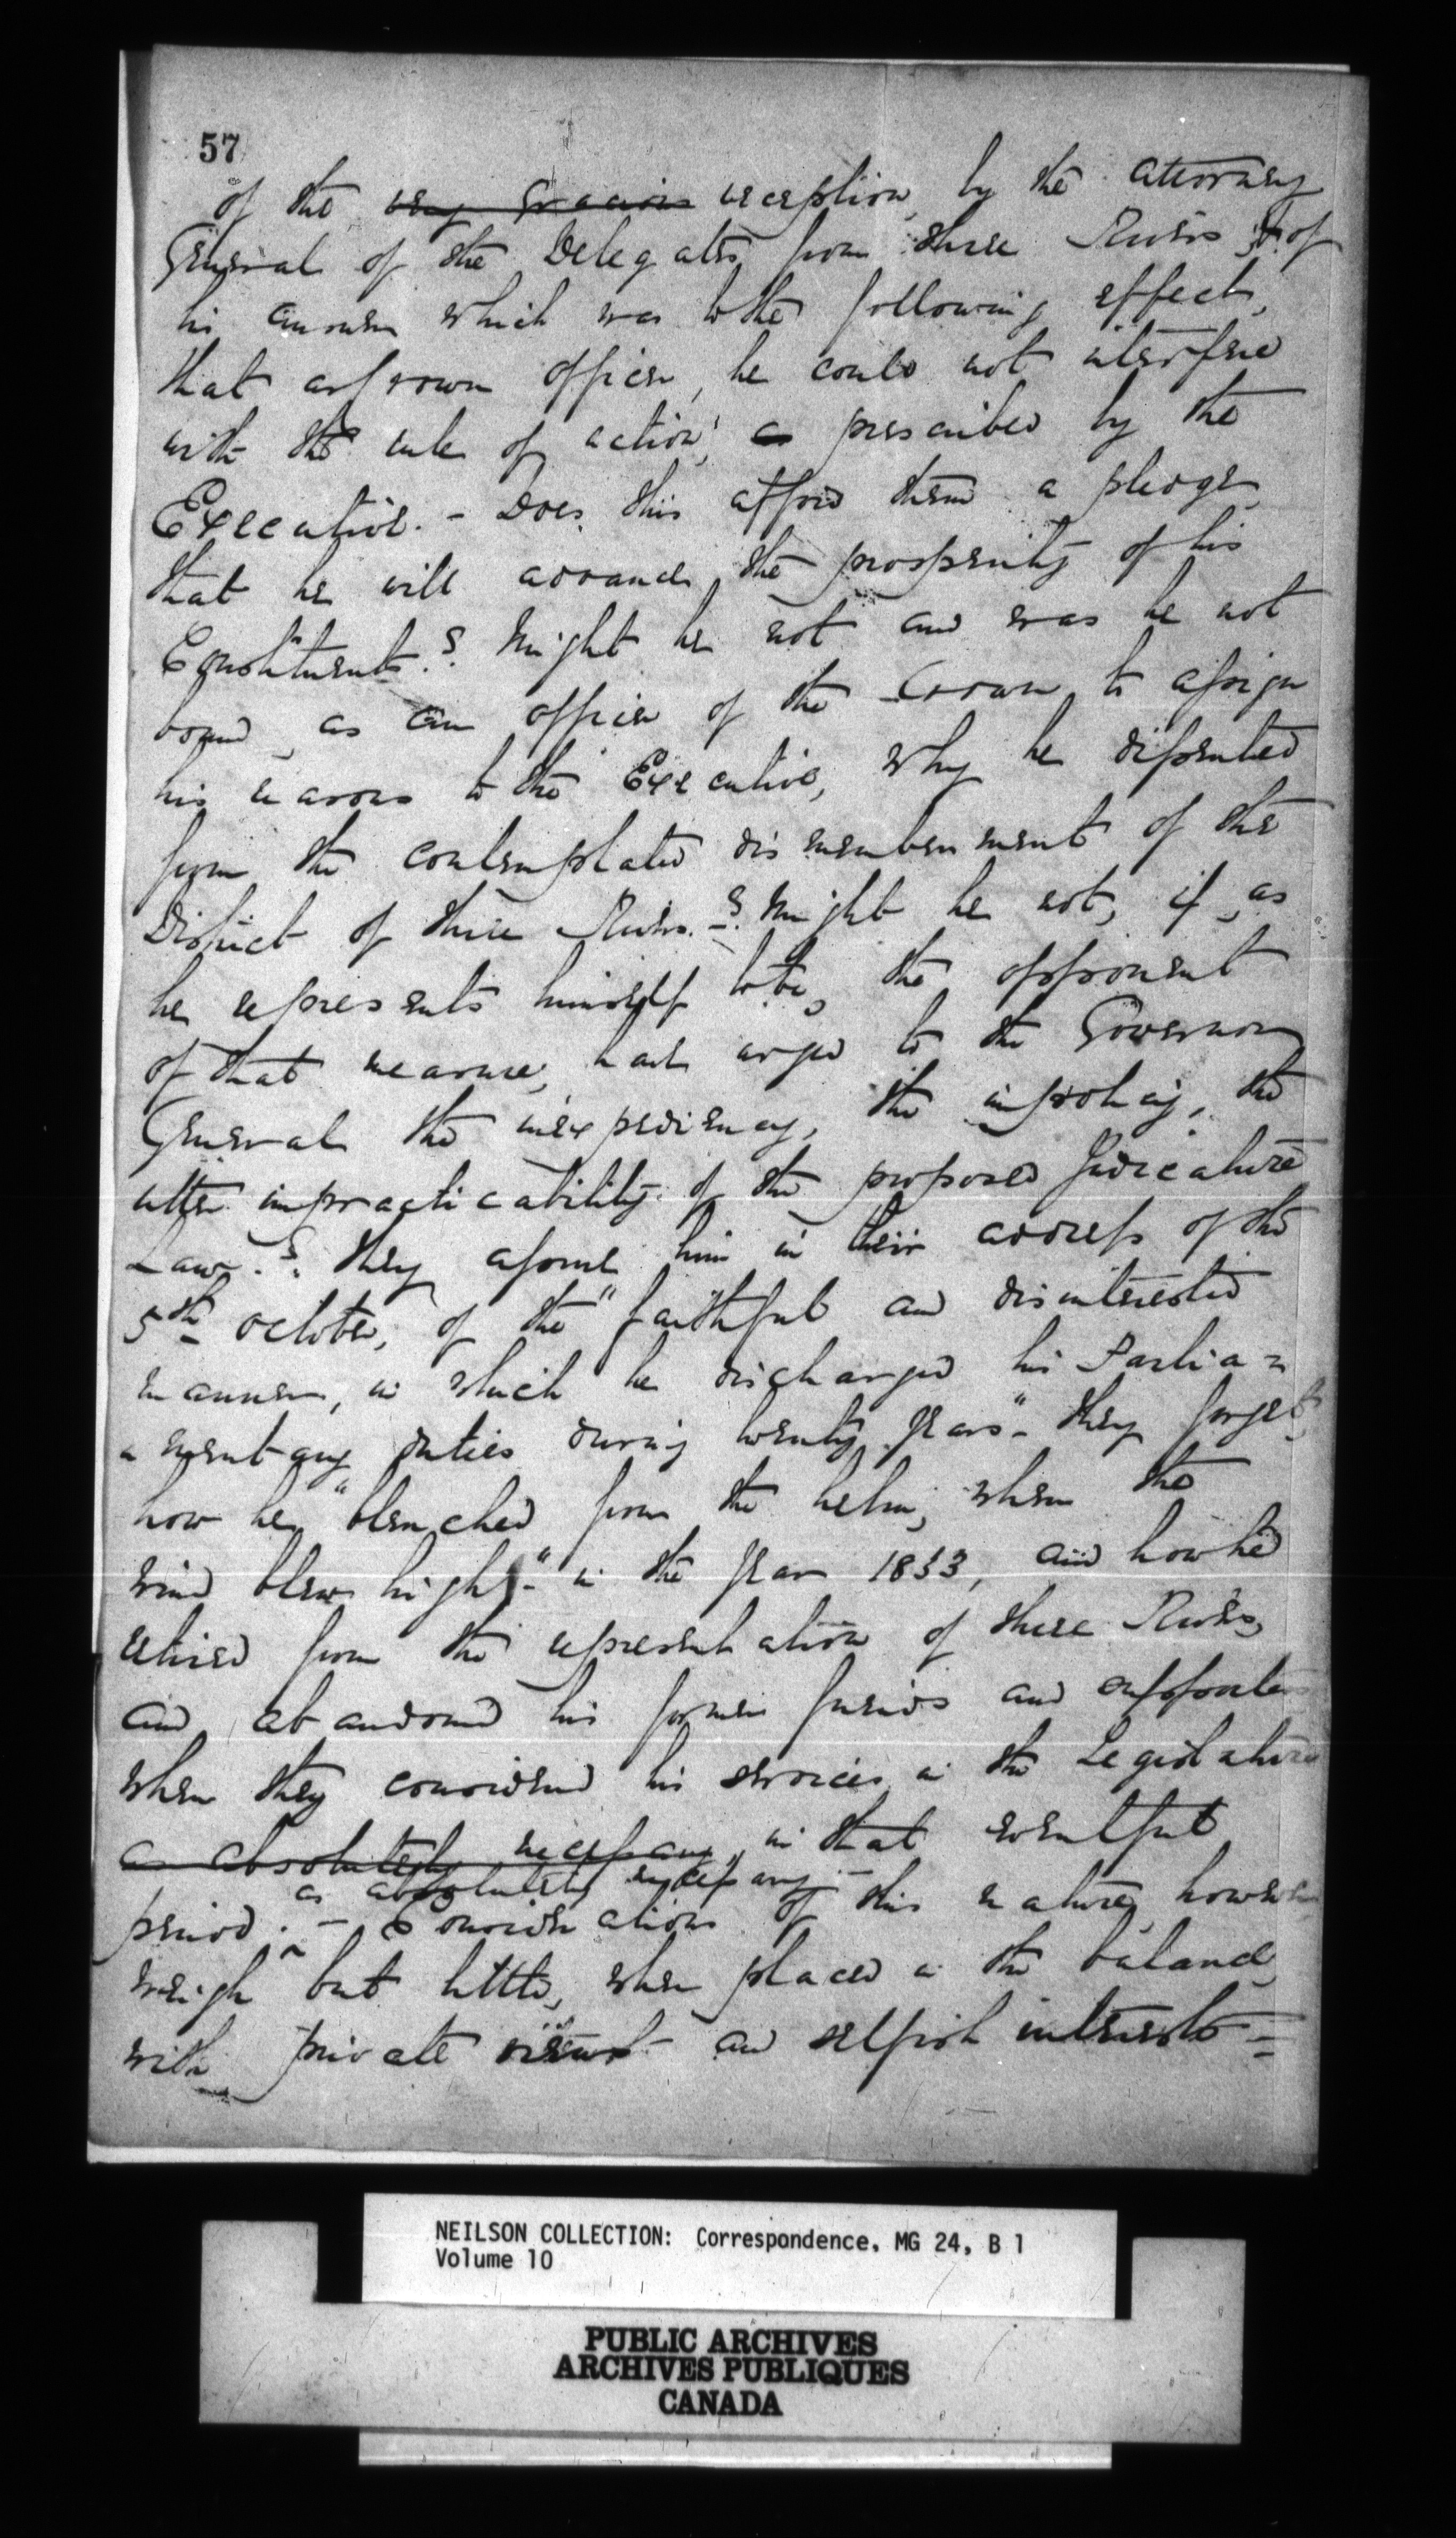 57
of the very Gracious reception, by the Attorney
General of the Delegates from three Rivers, & of
his answer which was to the following effect,
that as Crown officer, he could not interfere
with the rule of action, as prescribed by the
Executive. - Does this afford them a pledge
that he will advance the prosperity of his
Constituents.? Might he not and was he not
bound, as an officer of the Crown, to assign
his reasons to the Executive, why he dissented
from the contemplated dismemberment of the
District of three Rivers. -? Might he not, if, as
he represents himself to be, the opponent
of that measure, have urged to the Governor
General the inexpediency, the impolicy, the
utter impracticability of the proposed Judicature
Law.-? they assure him in their address of the
5th October, of the "faithful and disinterested
manner, in which he discharged his Parlia=
=mentary duties during twenty years" - they forget,
how he "blenched from the helm, when the
wind blew high -" in the year 1833, and how he
retired from the representation of three Rivers,
and abandoned his former friends and supporters
when they considered his services in the Legislature
as absolutely necessary, in that eventful
as absolutely necessary
period. - Considerations of this nature, however
weigh but little, when placed in the balance,
with private views and selfish interests =
NEILSON COLLECTION: Correspondence, MG 24, B 1
Volume 10
PUBLIC ARCHIVES
ARCHIVES PUBLIQUES
CANADA